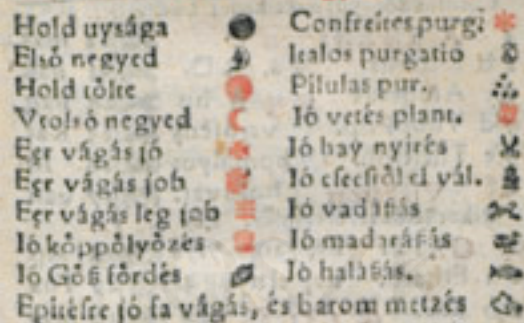 Hold uysága
Elsó negyed
Hold tólte
Vtolsó negyed
Eér vágás jó
Eér vágás job
Eér vágás leg job
Ió kóppólyózés
Ió Góß fórdés
Confectes purg:
Italos purgatio
Pilulas pur.
Ió vetés plant.
Ió hay nyirés
Ió csecstól el vál.
Ió vadáßás
Ió madaráßás
Ió haláßás.
Epitésre jó fa vágás, és barom metzés